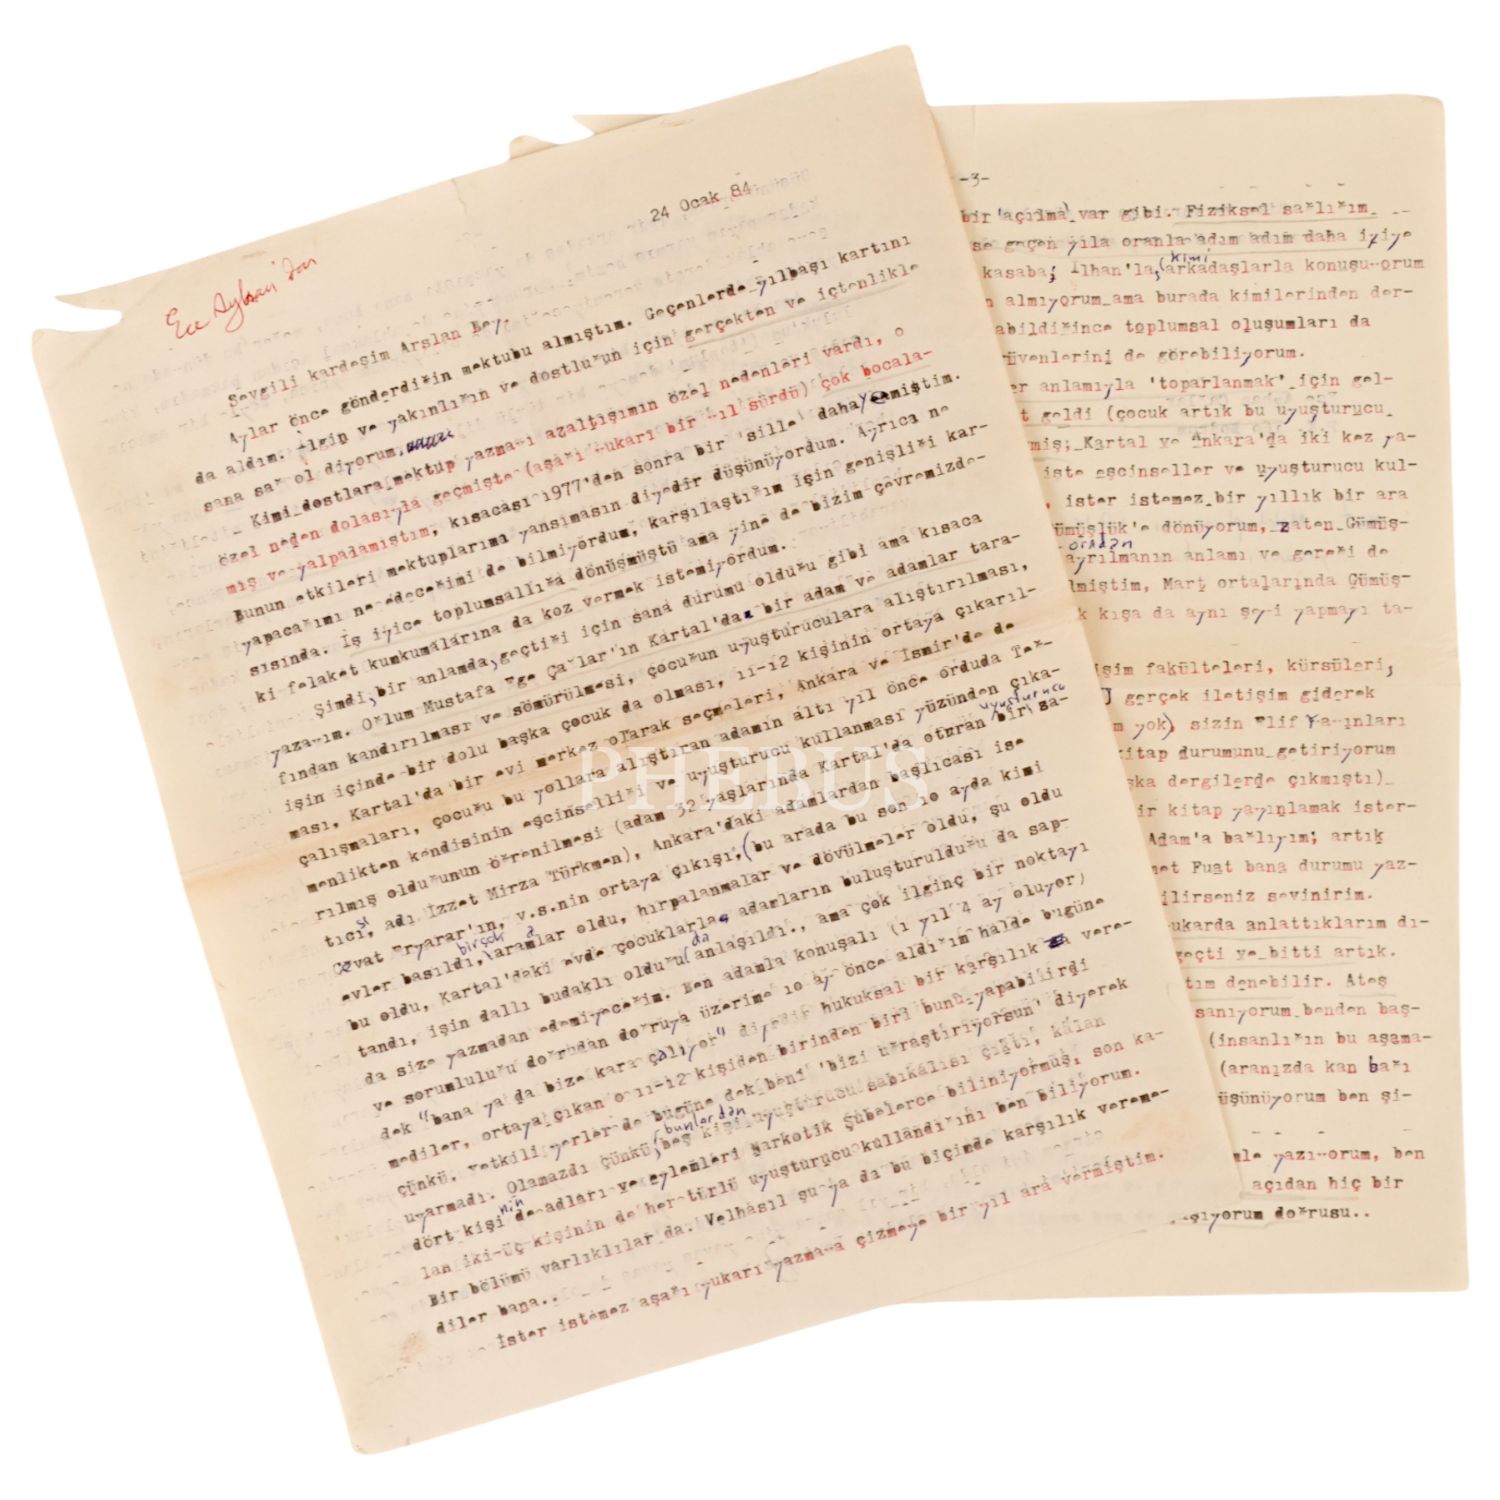 24 Ocak 84
Ece Ayhan'dan
Sevgili kardeşim Arslan Bey,
Aylar önce gönderdiğin mektubu almıştım. Geçenlerde yılbaşı kartını
da aldım. İlgin ve yakınlığın ve dostluğun için gerçekten ve içtenlikle
sana sağ ol diyorum.
Kimi dostlara mektup yazmayı azaltışımın özel nedenleri vardı, o
özel neden dolasıyla geçmişte (aşağı yukarı bir yıl sürdü) çok bocala-
mış ve yalpalamıştım, kısacası 1977'den sonra bir 'sille' daha yemiştim.
Bunun etkileri mektuplarıma yansımasın diyedir düşünüyordum. Ayrıca ne
yapacağımı ne edeceğimi de bilmiyordum, karşılaştığım için genişliği kar-
sısında. İş iyice toplumsallığa dönüşmüştü ama yine de bizim çevremizde-
ki felaket kumkumalarına da koz vermek istemiyordum.
Şimdi, bir anlamda, geçtiği için sana durumu olduğu gibi ama kısaca
yazayım. Oğlum Mustafa Ege Çağlar'ın Kartal'da bir adam ve adamlar tara-
fından kandırılması ve sömürülmesi, çocuğun uyuşturuculara alıştırılması,
işin içinde bir dolu başka çocuk da olması, 11-12 kişinin ortaya çıkarıl-
ması, Kartal'da bir evi merkez olarak seçmeleri, Ankara ve İsmir'de de
çalışmaları, çocuğu bu yollara alıştıran adamın altı yıl önce orduda Teğ-
menlikten kendisinin eşcinselliği ve uyuşturucu kullanması yüzünden çıka-
rılmış olduğunun öğrenilmesi (adam 32 yaşlarında Kartal'da oturan bir uyuşturucu sa-
tıcısı, adı İzzet Mirza Türkmen), Ankara'daki adamlardan başlıcası ise
Cevat Eryarar'ın, v.s.nin ortaya çıkışı, (bu arada bu son 10 ayda kimi
evler basıldı, birçok aramlar oldu, hırpalanmalar ve dövülmeler oldu, şu oldu
bu oldu, Kartal'daki evde çocuklarla adamların buluşturulduğu da sap-
tandı, işin dallı budaklı olduğu da anlaşıldı., ama çok ilginç bir noktayı
da size yazmadan edemiyeceğim. Ben adamla konuşalı (1 yıl 4 ay oluyor)
ve sorumluluğu doğrudan doğruya üzerime 10 ay önce aldığım halde bugüne
dek "bana ya da bize kara çalıyor" diyedir hukuksal bir karşılık vere-
mediler, ortaya çıkan o 11-12 kişiden birinden biri bunu yapabilirdi
çünkü. Yetkili yerler de bugüne dek beni 'bizi uğraştırıyorsun' diyerek
uyarmadı. Olamazdı çünkü, bunlardan beş kişi uyuşturucu sabıkalısı çıktı, kalan
dört kişinin de adları ve eylemleri Narkotik Şubelerce biliniyormuş, son ka-
lan iki-üç kişinin de her türlü uyuşturucu kullandığını ben biliyorum.
Bir bölümü varlıklılar da. Velhasıl şu ya da bu biçimde karşılık vereme-
diler bana..
İster istemez aşağı yukarı yazmaya çizmeye bir yıl ara vermiştim.
-3-
bir 'açılma' var gibi. Fiziksel sağlığım
se geçen yıla oranla adım adım daha iyiye
kasaba; İlhan'la, kimi arkadaşlarla konuşuyorum
almıyorum ama burada kimilerinden der-
abildiğince toplumsal oluşumları da
üvenlerini de görebiliyorum.
er anlamıyla 'toparlanmak' için gel-
t geldi (çocuk artık bu uyuşturucu
miş; Kartal ve Ankara'da iki kez ya-
işte eşcinseller ve uyuşturucu kul-
, ister istemez bir yıllık bir ara
ümüşlük'e dönüyorum, zaten Gümüş-
oradan ayrılmanın anlamı ve gereği de
lmiştim, Mart ortalarında Gümüş-
k kışa da aynı şeyi yapmayı ta-
işim fakülteleri, kürsüleri,
gerçek iletişim giderek
m yok) sizin Elif Yayınları
kitap durumunu getiriyorum
ka dergilerde çıkmıştı)
ir kitap yayınlamak ister-
Adam'a bağlıyım; artık
met Fuat bana durumu yaz-
ilirseniz sevinirim.
ukarda anlattıklarım dı-
geçti ve bitti artık.
tım denebilir. Ateş
sanıyorum benden baş-
(insanlığın bu aşama-
(aranızda kan bağı
üşünüyorum ben şi-
mle yazıyorum, ben
açıdan hiç bir
ışıyorum doğrusu..
PHEBUS